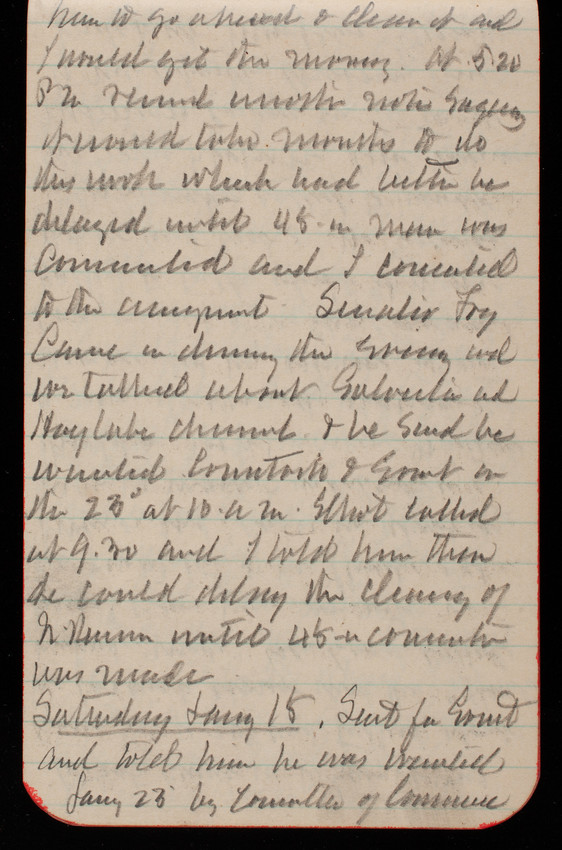 him to go ahead & clean it and
I would get the money. At 5.20
P M
it would take months to do
this work which had better be
delayed until 48 in main was
Connected and I consented
to the arrangement Senator Fry
Came in during the evening and
we talked about Galveston and
Hay Lake channel & he said he
wanted Comstock & Ernst on
the 23d at 10 a.m. Elliot called
at 9.30 and I told him then
he could delay the cleaning of
until 48 in connection
was made
Saturday Jany 18. Sent for Ernst
and told him he was wanted
Jany 23 by Committee of Commerce